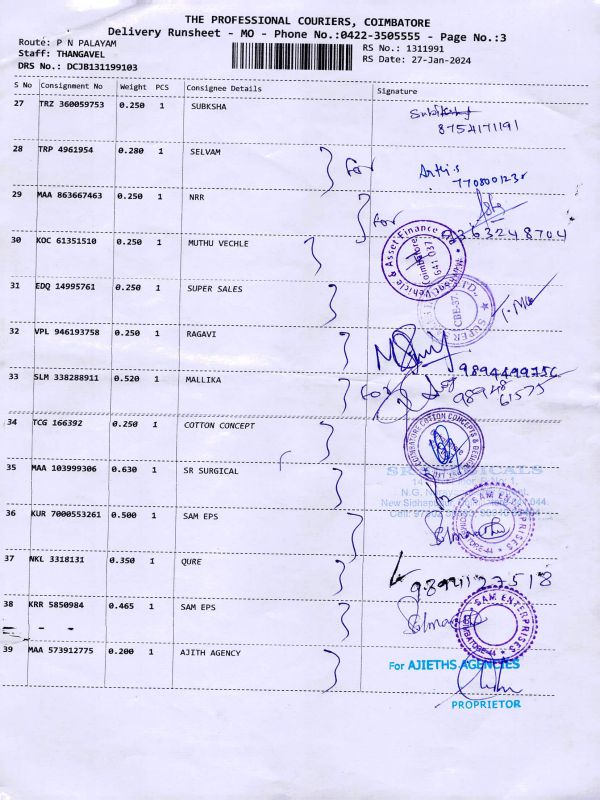 THE PROFESSIONAL COURIERS, COIMBATORE
Delivery Runsheet - MO - Phone No.:0422-3505555 - Page No.:3
Route: P N PALAYAM
Staff: THANGAVEL
DRS No.: DCJB131199103
RS No.: 1311991
RS Date: 27-Jan-2024
S No Consignment No Weight PCS Consignee Details Signature
27 TRZ 360059753 0.250 1 SUBKSHA
8754171191
28 TRP 4961954 0.280 1 SELVAM
For
29 MAA 863667463 0.250 1 NRR
For
30 KOC 61351510 0.250 1 MUTHU VECHLE
Vehicle & Asset Finance Ltd
Coimbatore
641 037
31 EDQ 14995761 0.250 1 SUPER SALES
SUPER
CBE-37
32 VPL 946193758 0.250 1 RAGAVI
9894499756
33 SLM 338288911 0.520 1 MALLIKA
For
98948
61575
34 TCG 166392 0.250 1 COTTON CONCEPT
COIMBATORE COTTON CONCEPTS &
35 MAA 103999306 0.630 1 SR SURGICAL
36 KUR 7000553261 0.500 1 SAM EPS
SAM ENTERPRISES
37 NKL 3318131 0.350 1 QURE
9894127518
38 KRR 5850984 0.465 1 SAM EPS
SAM ENTERPRISES
COIMBATORE-44
39 MAA 573912775 0.200 1 AJITH AGENCY
For AJIETHS AGENCIES
PROPRIETOR